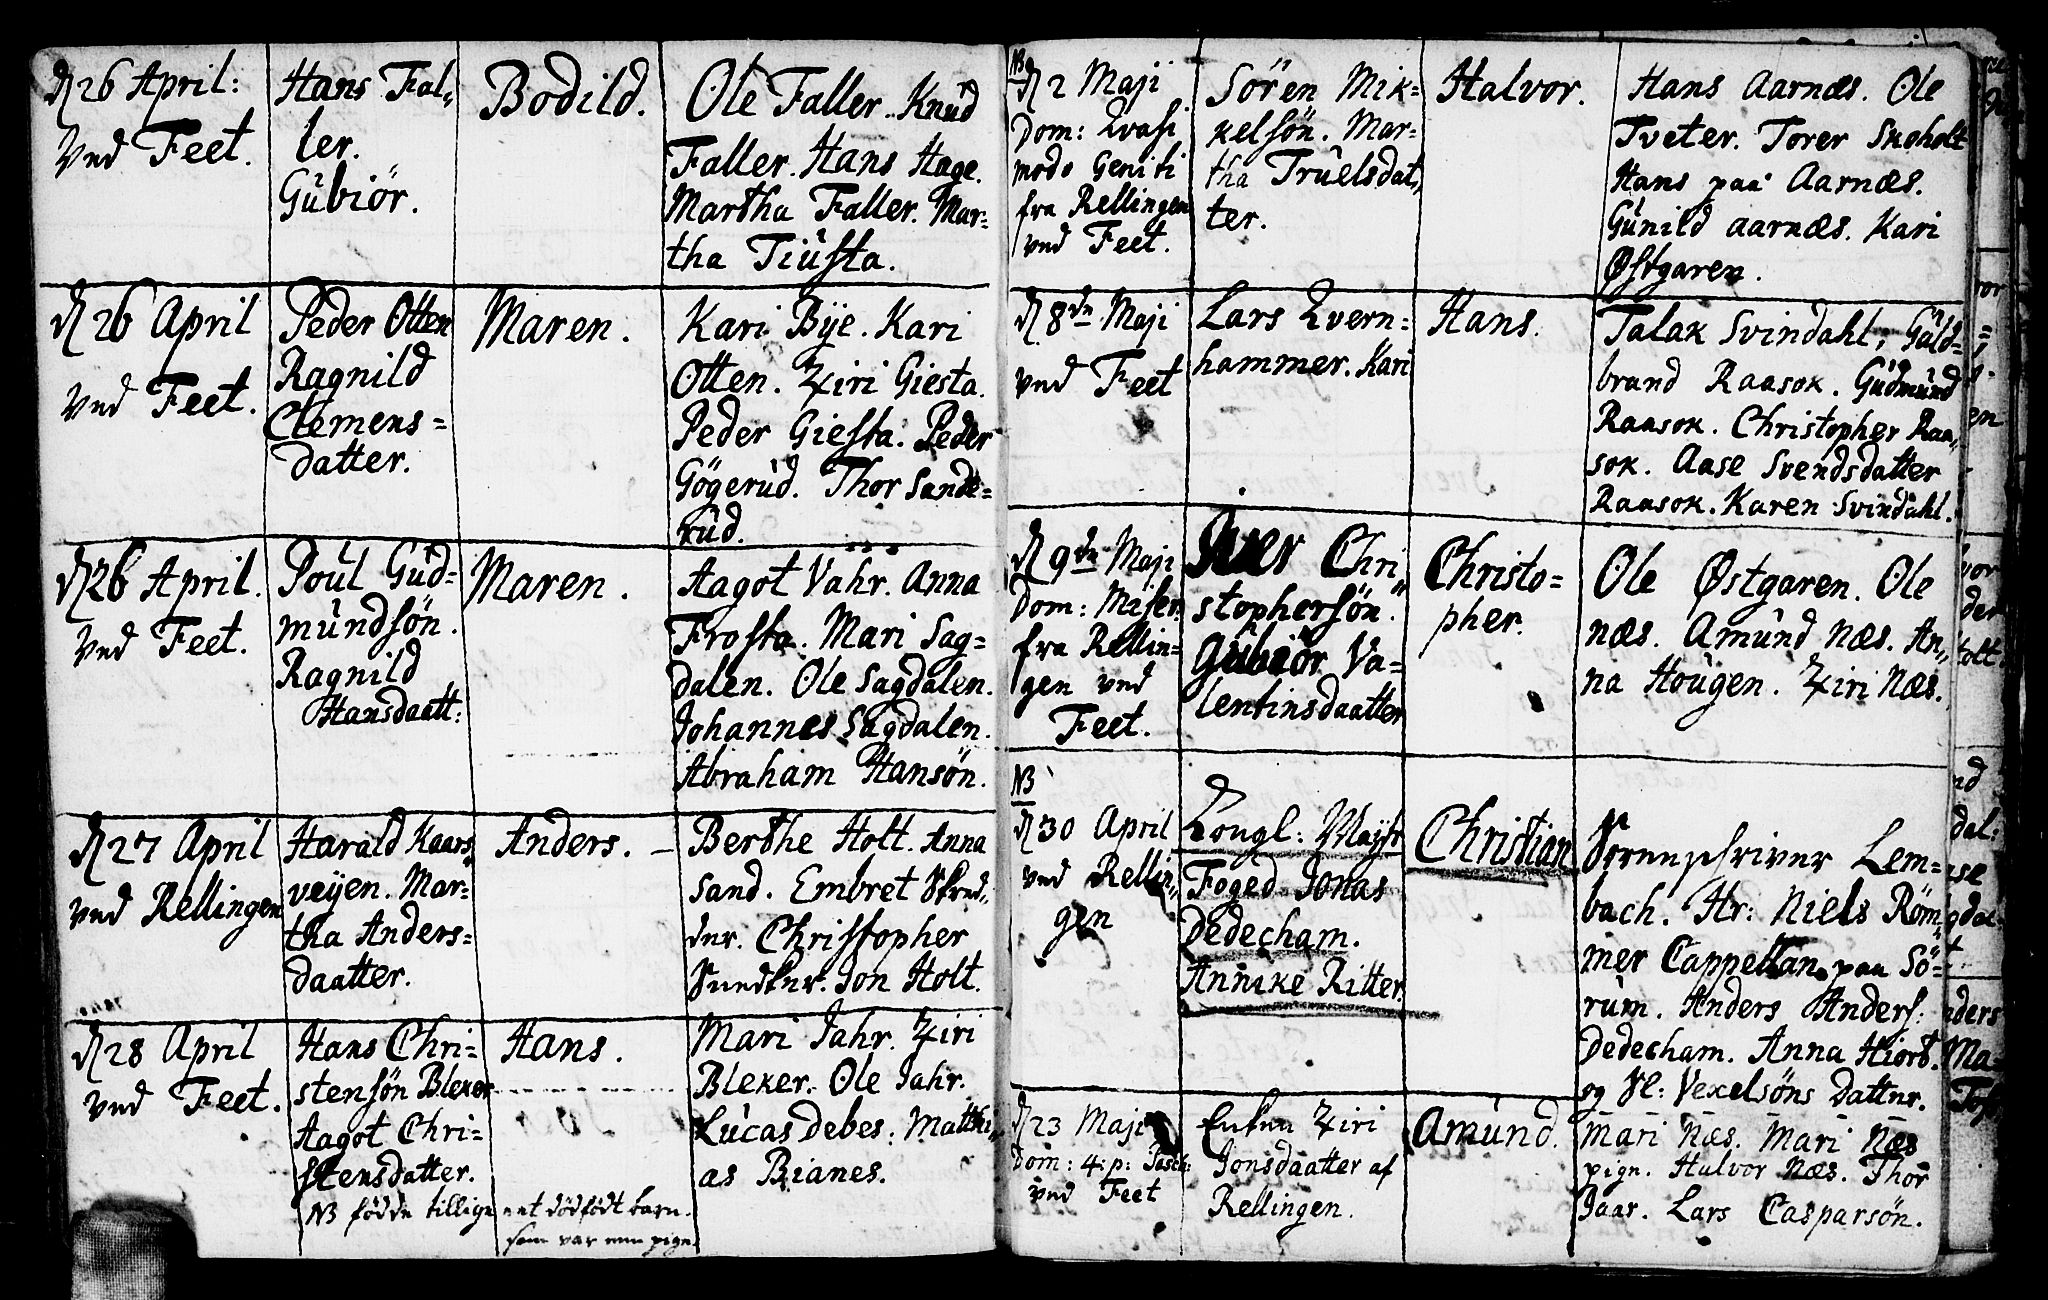 d 26 April:
ved Feet.
Hans Fal„
ler.
Gúbiör.
Bodild.
Ole Faller. Knúd
Faller. Hans Hage.
Martha Faller. Mar=
tha Tiústa.
d 26 April
ved Feet.
Peder Otten
Ragnild
Clemens=
datter.
Maren.
Kari Bÿe. Kari
Otten. Ziri Giesta.
Peder Giesta. Peder
Gögerúd. Thor Sande=
rúd.
d 26 April.
ved Feet.
Poúl Gúd=
múndsön.
Ragnild
Hansdaatt:
Maren.
Aagot Vahr. Anna
Frosta. Mari Sag=
dalen. Ole Sagdalen.
Johannes Sagdalen.
Abraham Hansön.
d 27 April
ved Rellingen
Harald Kaars
veÿen. Mar=
tha Anders=
daatter.
Anders.
Berthe Holt. Anna
Sand. Embret Skred„
der. Christopher
Jon Holt.
d 28 April
ved Feet.
Hans Chri=
stensön Bleker
Aagot Chri=
stensdatter.
NB födde tillige et dödfödt barn.
som var een pige.
Hans.
Mari Jahr. Ziri
Bleker. Ole Jahr.
Lúcas Debes. Matthi„
as Bianes.
NB
d 2 Maji
Dom: Qvasi
modo Geniti
fra Rellingen
ved Feet.
Sören Mik=
kelsön. Mar=
tha Trúelsdat„
ter.
Halvor.
Hans Aarnæs. Ole
Tveter. Torer Skoholt
Hans paa Aarnæs.
Gúnild Aarnæs. Kari
Østgaren.
d 8de Maji
ved Feet
Lars Qvern=
hammer. Kari
Hans.
Talak Svindahl, Gúld=
brand Raasok. Gúdmúnd
Raasok. Christopher Raa„
sok. Aase Svendsdatter
Raasok. Karen Svindahl.
d 9de Maji
Dom: Miser:
fra Rellin=
gen ved
Feet.
Iver Chri„
stophersön.
Gúbiör Va=
lentinsdaatter
Christo=
pher.
Ole Østgaren. Ole
Næs. Amúnd Næs. An„
na Hoúgen. Ziri Næs.
NB
d 30 April
ved Rellin„
gen
Kongl: Maÿst
Foged Jonas
Dedecham.
Annike Ritter.
Christian
Sorenschriver Lem=
bach. Hr: Niels Röm„
mer Cappellan paa Sö=
rúm. Anders Anders:
Dedecham. Anna Hiort.
og Sl: Vexelsöns Datter.
d 23 Maji
Dom: 4: p: Pasch:
ved Feet
Enken Ziri
Jonsdaatter af
Rellingen.
Amúnd.
Mari Næs. Mari Næs
pige. Halvor Næs. Thor
Jaar. Lars Casparsön.